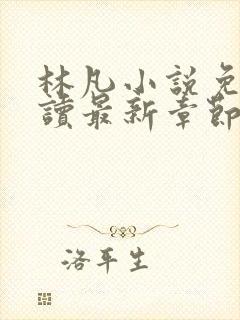 林凡小說免
讀最新章節
洛平生